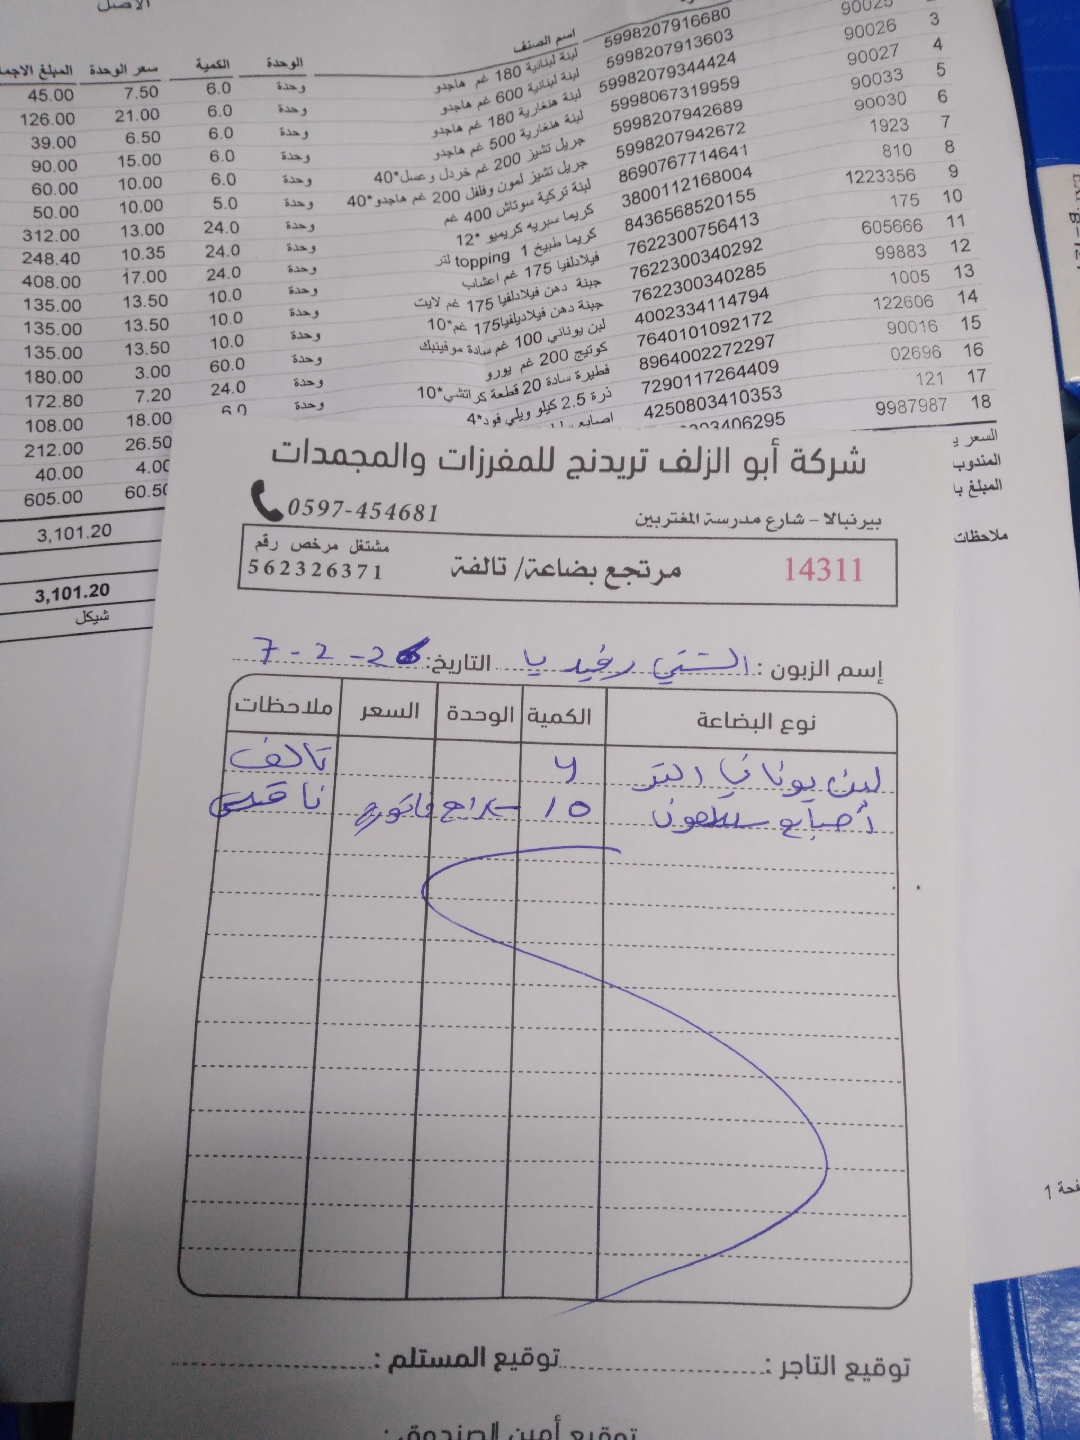 الاصل
اسم الصنف الوحدة الكمية سعر الوحدة المبلغ الاجما
90025 5998207916680 لبنة لبنانية 180 غم هاجدو وحدة 6.0 7.50 45.00
3 90026 5998207913603 لبنة لبنانية 600 غم هاجدو وحدة 6.0 21.00 126.00
4 90027 59982079344424 لبنة هنغارية 180 غم هاجدو وحدة 6.0 6.50 39.00
5 90033 5998067319959 لبنة هنغارية 500 غم هاجدو وحدة 6.0 15.00 90.00
6 90030 5998207942689 جريل تشيز 200 غم خردل وعسل*40 وحدة 6.0 10.00 60.00
7 1923 5998207942672 جريل تشيز لمون وفلفل 200 غم هاجدو*40 وحدة 5.0 10.00 50.00
8 810 8690767714641 لبنة تركية سوتاش 400 غم وحدة 24.0 13.00 312.00
9 1223356 3800112168004 كريما سبريه كريميو *12 وحدة 24.0 10.35 248.40
10 175 8436568520155 كريما طبيخ 1 topping لتر وحدة 24.0 17.00 408.00
11 605666 7622300756413 فيلادلفيا 175 غم اعشاب وحدة 10.0 13.50 135.00
12 99883 7622300340292 جبنة دهن فيلادلفيا 175 غم لايت وحدة 10.0 13.50 135.00
13 1005 7622300340285 جبنة دهن فيلاديلفيا175 غم*10 وحدة 10.0 13.50 135.00
14 122606 4002334114794 لبن يوناني 100 غم سادة موفينبك وحدة 60.0 3.00 180.00
15 90016 7640101092172 كوتيج 200 غم يورو وحدة 24.0 7.20 172.80
16 02696 8964002272297 فطيرة سادة 20 قطعة كراتشي*10 وحدة 6.0 18.00 108.00
17 121 7290117264409 ذرة 2.5 كيلو ويلي فود*4 26.50 212.00
18 9987987 4250803410353 اصابع 4.00 40.00
3406295 60.50 605.00
السعر
المندوب
المبلغ با
3,101.20
ملاحظات
3,101.20
شيكل
شركة أبو الزلف تريدنج للمفرزات والمجمدات
بيرنبالا - شارع مدرسة المغتربين 0597-454681
14311 مرتجع بضاعة/ تالفة مشتغل مرخص رقم 562326371
إسم الزبون : الشني رفيديا التاريخ: 7-2-26
نوع البضاعة الكمية الوحدة السعر ملاحظات
لبن يوناني التر 4 تالف
أصابع سلمون 10 فاتورة ناقص
توقيع التاجر : توقيع المستلم :
توقيع أمين الصندوق :
فحة 1